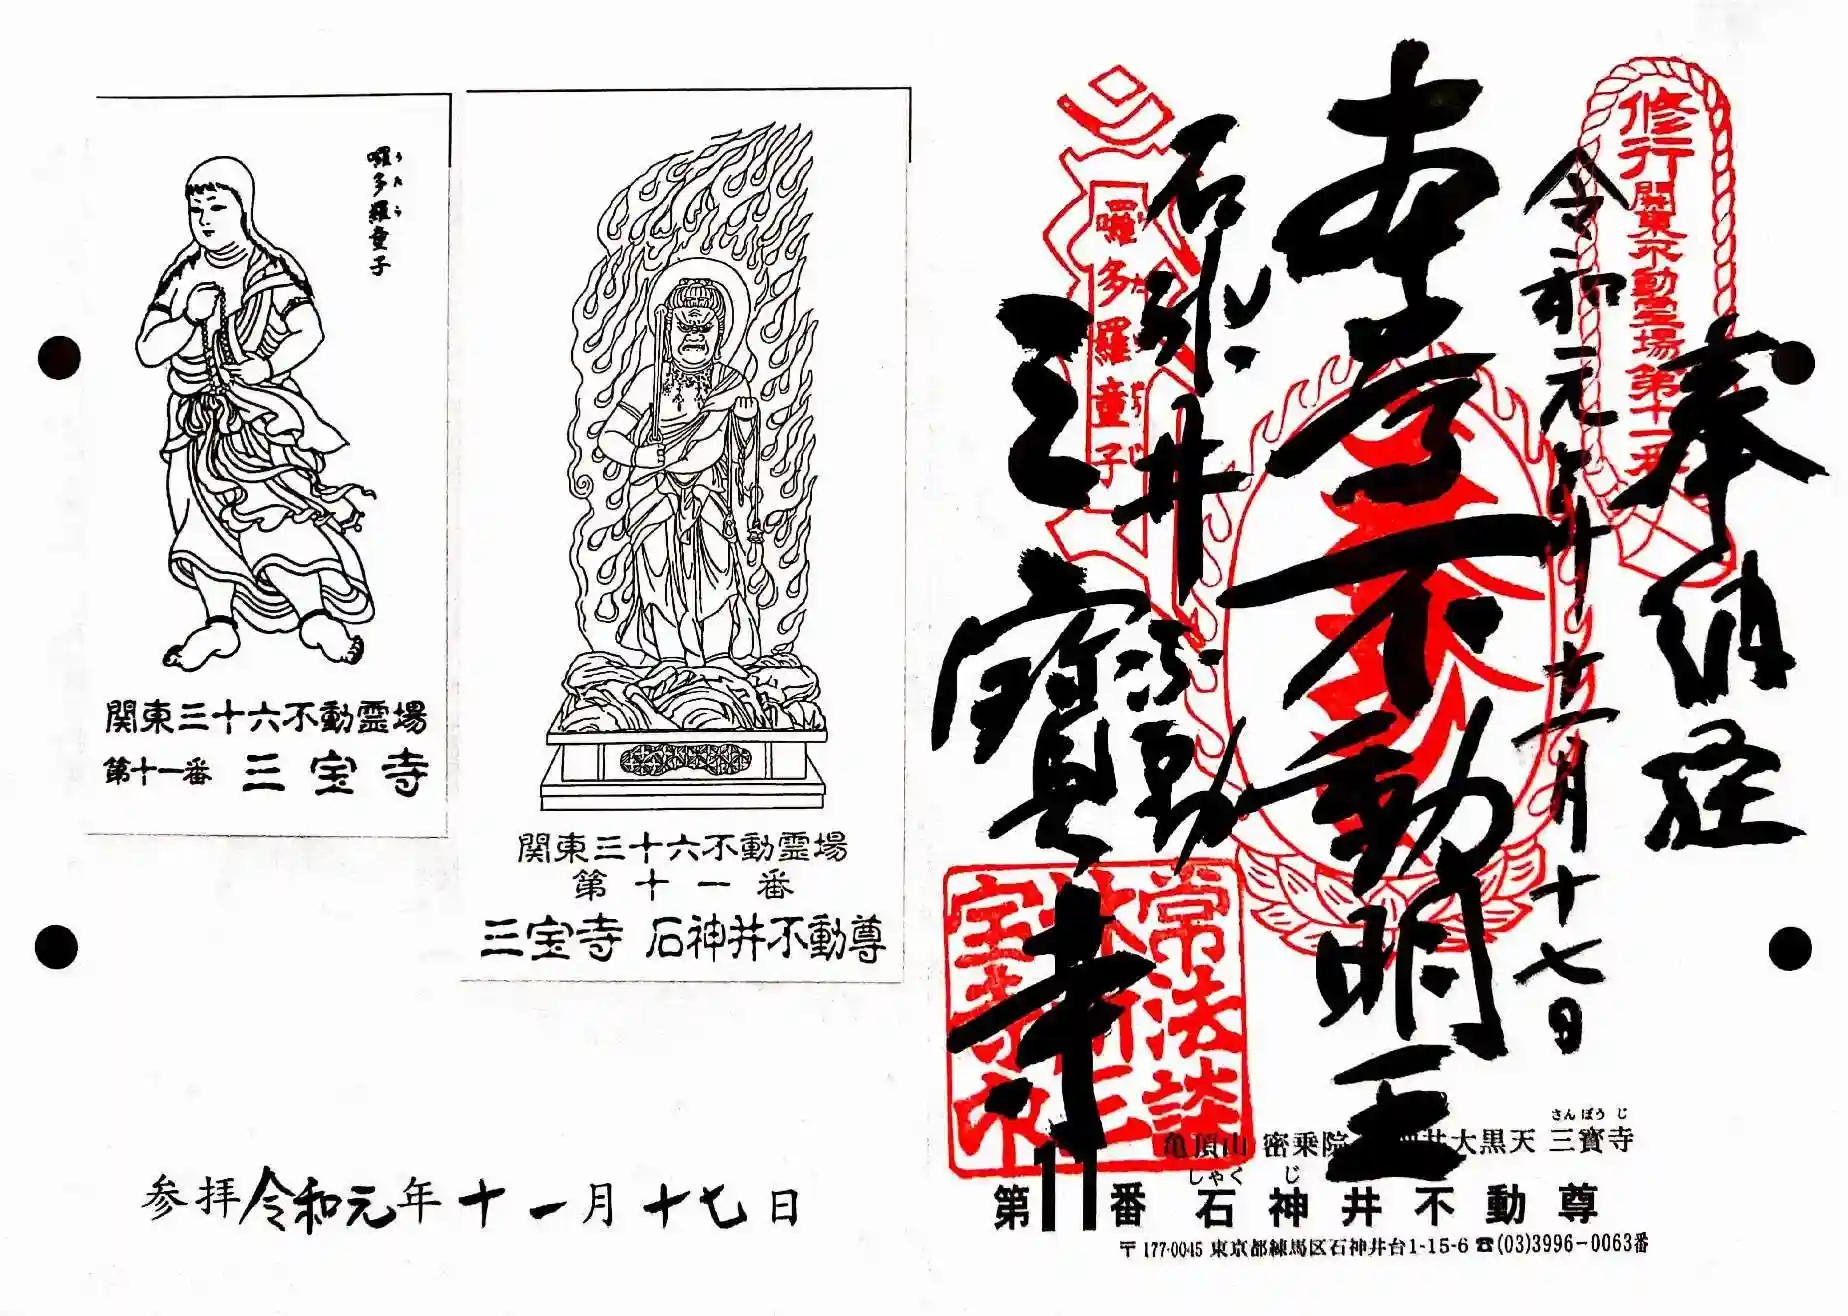 囉多羅童子
うたら
関東三十六不動霊場
第十一番 三宝寺
関東三十六不動霊場
第十一番
三宝寺 石神井不動尊
参拝令和元年十一月十七日
修行関東不動霊場第十一番
奉納経
令和元年十一月十七日
本尊不動明王
石神井不動
三寶寺
囉多羅童子
常法談
さんぽうじ
亀頂山 密乗院 大黒天 三寶寺
しゃくじ
第11番 石神井不動尊
〒177-0045 東京都練馬区石神井台1-15-6 ☎(03)3996-0063番